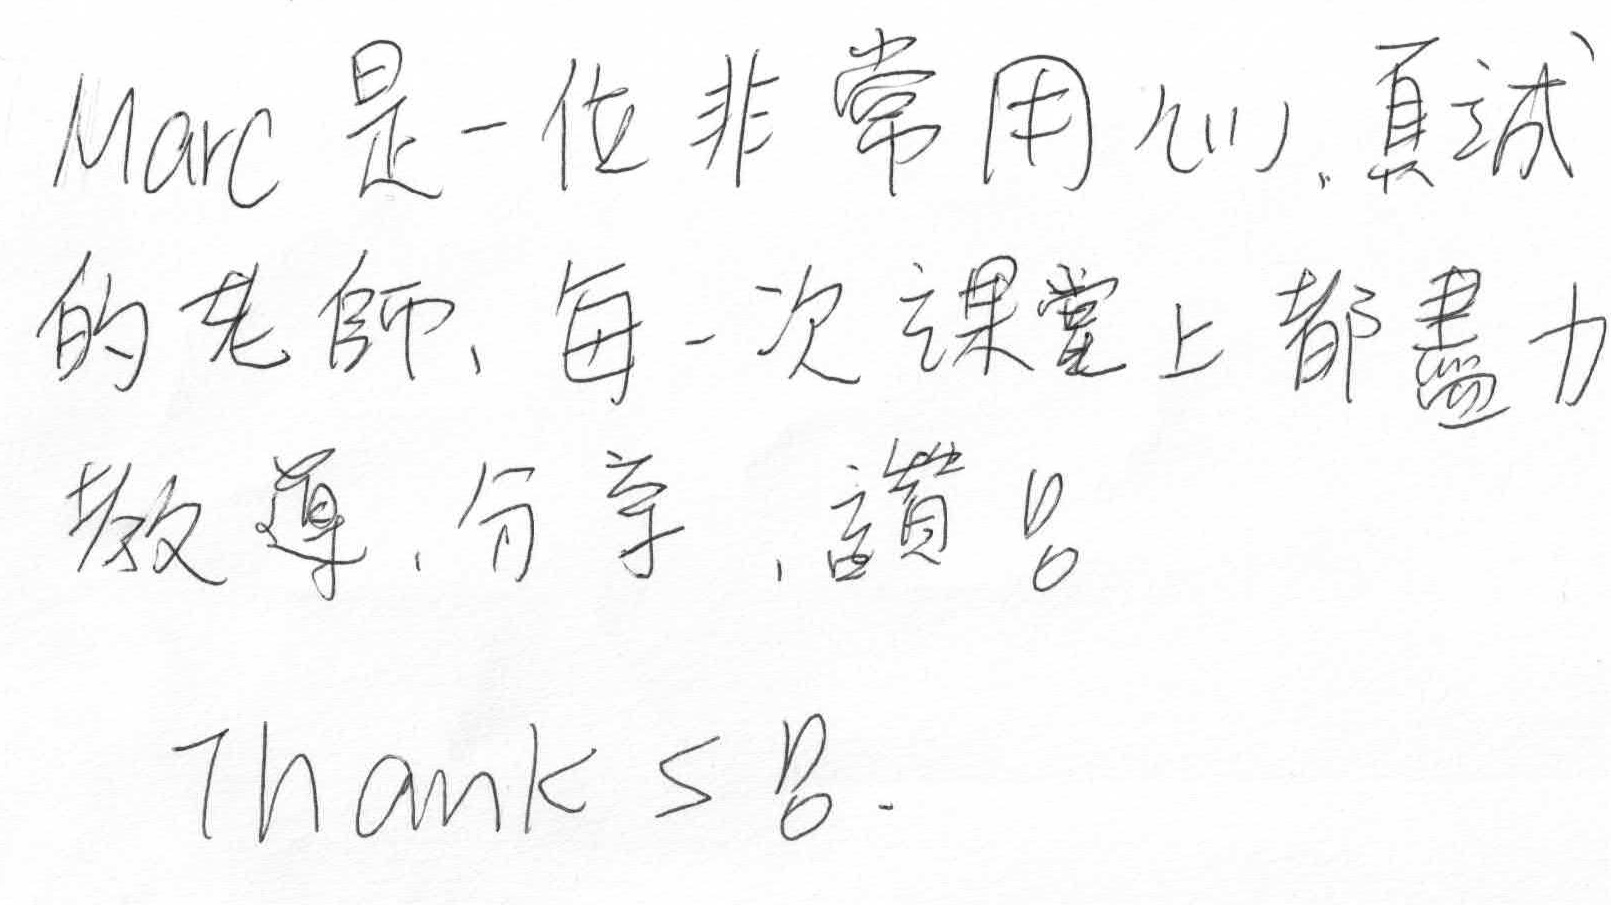 Marc是一位非常用心、真誠
的老師、每一次課堂上都盡力
教導、分享、讚!
Thanks!.